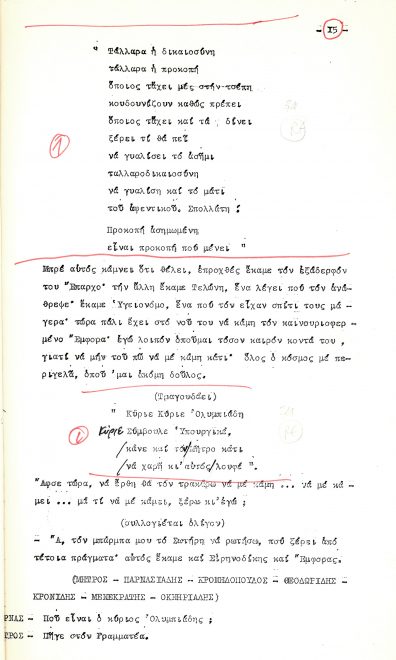 - 15 -
" Τάλλαρα ἡ δικαιοσύνη
τάλλαρα ἡ προκοπή
ὅποιος τἄχει μές στήν τσέπη
κουδουνίζουν καθώς πρέπει
ὅποιος τἄχει καί τά δίνει
ξέρει τί θά πεῖ
νά γυαλίσει τό ἀσῆμι
ταλλαροδικαιοσύνη
νά γυαλίση καί τό μάτι
τοῦ ἀφεντικοῦ. Σπολλάτη !
Προκοπή ἀσημωμένη
εἶναι προκοπή πού μένει "
1
Μπρέ αὐτός κάμνει ὅτι θέλει, ἐπροχθές ἔκαμε τόν ἐξάδερφόν
του Ἔπαρχο· τήν ἄλλη ἔκαμε Τελώνη, ἕνα λέγει πού τόν ἀνά-
θρεψε· ἔκαμε Ὑγειονόμο, ἕνα πού τόν εἶχαν σπίτι τους μά-
γερα· τώρα πάλι ἔχει στό νοῦ του νά κάμη τόν καινουριοφερ-
μένο Ἔμφορα· ἐγώ λοιπόν ὁποῦμαι τόσον καιρόν κοντά του ,
γιατί νά μήν τοῦ πῶ νά μέ κάμη κάτι· ὅλος ὁ κόσμος μέ πε-
ριγελᾶ, ὁποῦ 'μαι ἀκόμη δοῦλος.
(Τραγουδάει)
" Κύριε Κύριε Ὀλυμπιάδη
Κύριε Σύμβουλε Ὑπουργικέ,
κάνε καί τό Μῆτρο κάτι
νά χαρῆ κι'αὐτός λουφέ ".
Ἄφσε τώρα, νά ἔρθη θά τόν τρακάρω νά μέ κάμη ... νά μέ κά-
μει ... μά τί νά μέ κάμει, ξέρω κι'ἐγώ ;
(συλλογιέται ὀλίγον)
- Ἄ, τόν μπάρμπα μου τό Σωτήρη νά ρωτήσω, πού ξέρει ἀπό
τέτοια πράγματα· αὐτός ἔκαμε καί Εἰρηνοδίκης καί Ἔμφορας.
(ΜΗΤΡΟΣ - ΠΑΡΝΑΣΙΑΔΗΣ - ΚΡΟΜΗΔΟΠΟΥΛΟΣ - ΘΕΟΔΩΡΙΔΗΣ -
ΚΡΟΝΙΔΗΣ - ΜΕΝΕΚΡΑΤΗΣ - ΟΚΝΗΡΙΑΔΗΣ)
ΡΝΑΣ - Ποῦ εἶναι ὁ κύριος Ὀλυμπιάδης ;
ΤΡΟΣ - Πῆγε στόν Γραμματέα.